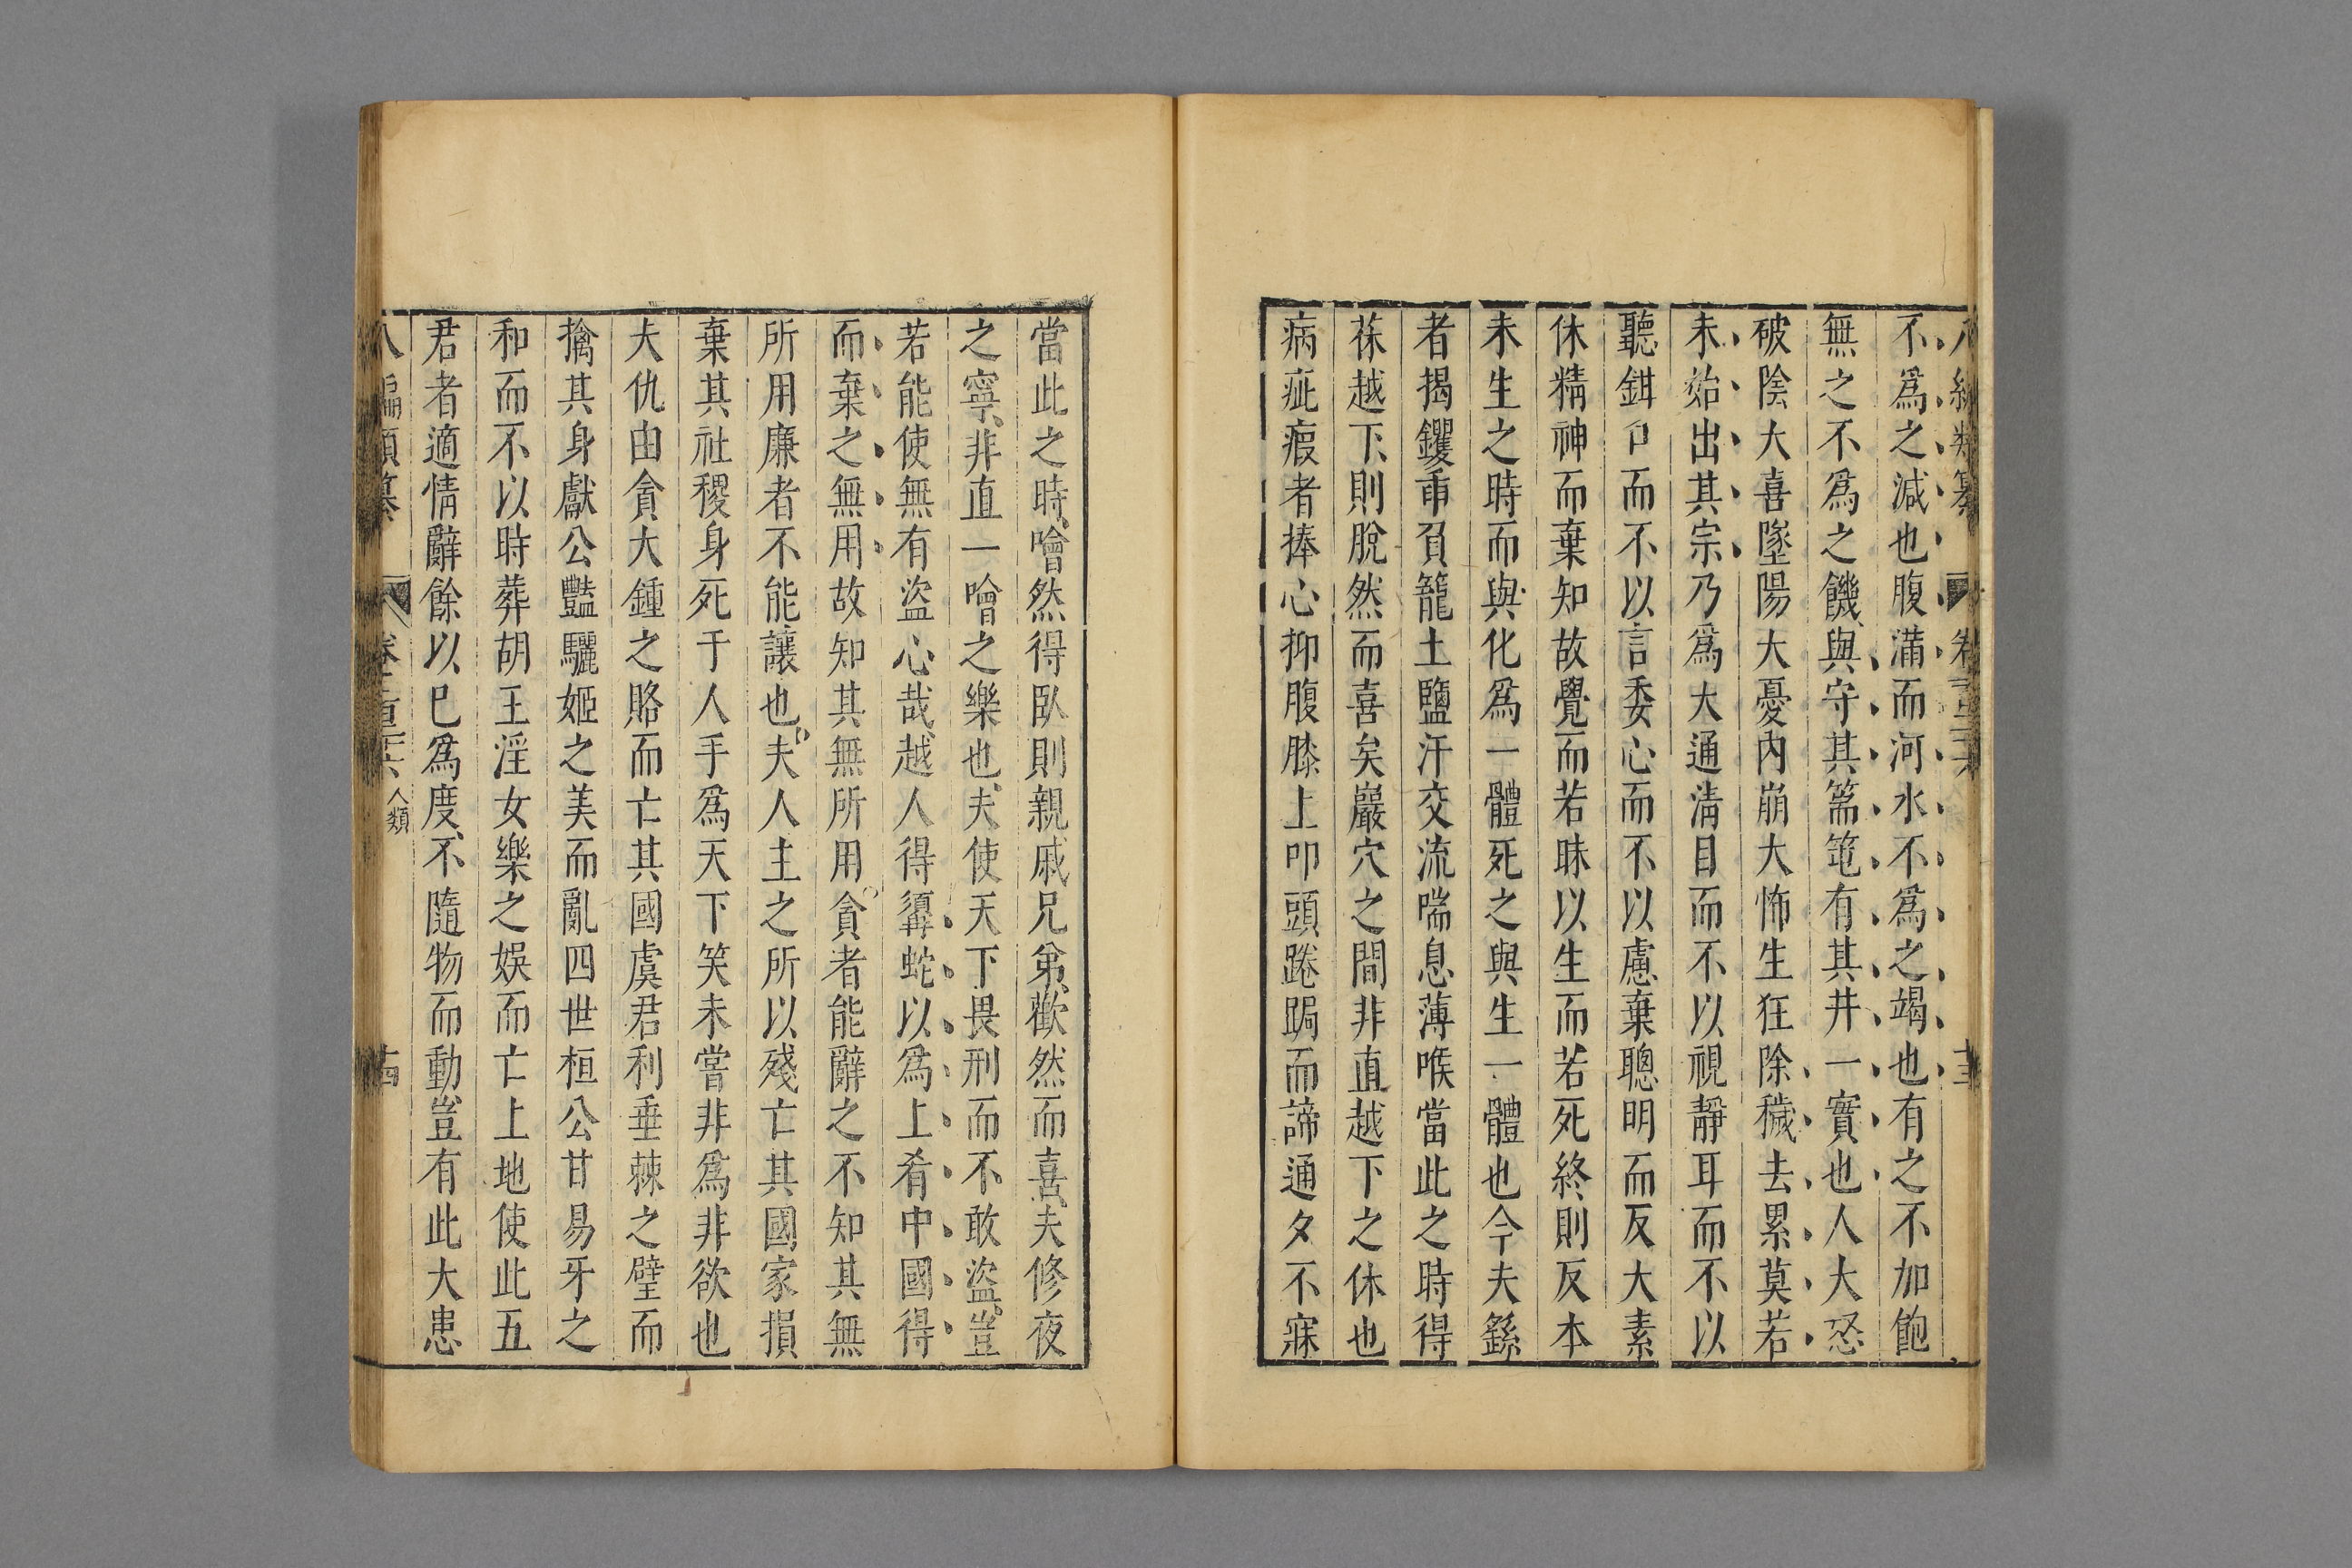 不爲之減也腹滿而河水不爲之竭也有之不加飽
無之不爲之饑與守其篅𥫱有其井一實也人大怒
破陰大喜墜陽大憂內崩大怖生狂除穢去累莫若
未始出其宗乃爲大通淸目而不以視靜耳而不以
聽鉗口而不以言委心而不以慮棄聰明而反大素
休精神而棄知故覺而若昧以生而若死終則反本
未生之時而與化爲一體死之與生一體也今夫繇
者揭钁臿負籠土鹽汗交流喘息薄喉當此之時得
茠越下則脫然而喜矣巖穴之間非直越下之休也
病疵瘕者捧心抑腹膝上叩頭踡跼而諦通夕不寐
當此之時噲然得臥則親戚兄弟歡然而喜夫修夜
之寧非直一噲之樂也夫使天下畏刑而不敢盜豈
若能使無有盜心哉越人得髯蛇以爲上肴中國得
而棄之無用故知其無所用貪者能辭之不知其無
所用廉者不能讓也夫人主之所以殘亡其國家損
棄其社稷身死于人手爲天下笑未嘗非爲非欲也
夫仇由貪大鍾之賂而亡其國虞君利垂棘之璧而
擒其身獻公豔驪姬之美而亂四世桓公甘易牙之
和而不以時葬胡王淫女樂之娛而亡上地使此五
君者適情辭餘以巳爲度不隨物而動豈有此大患
八編類纂 卷二百二十六 人類 十四